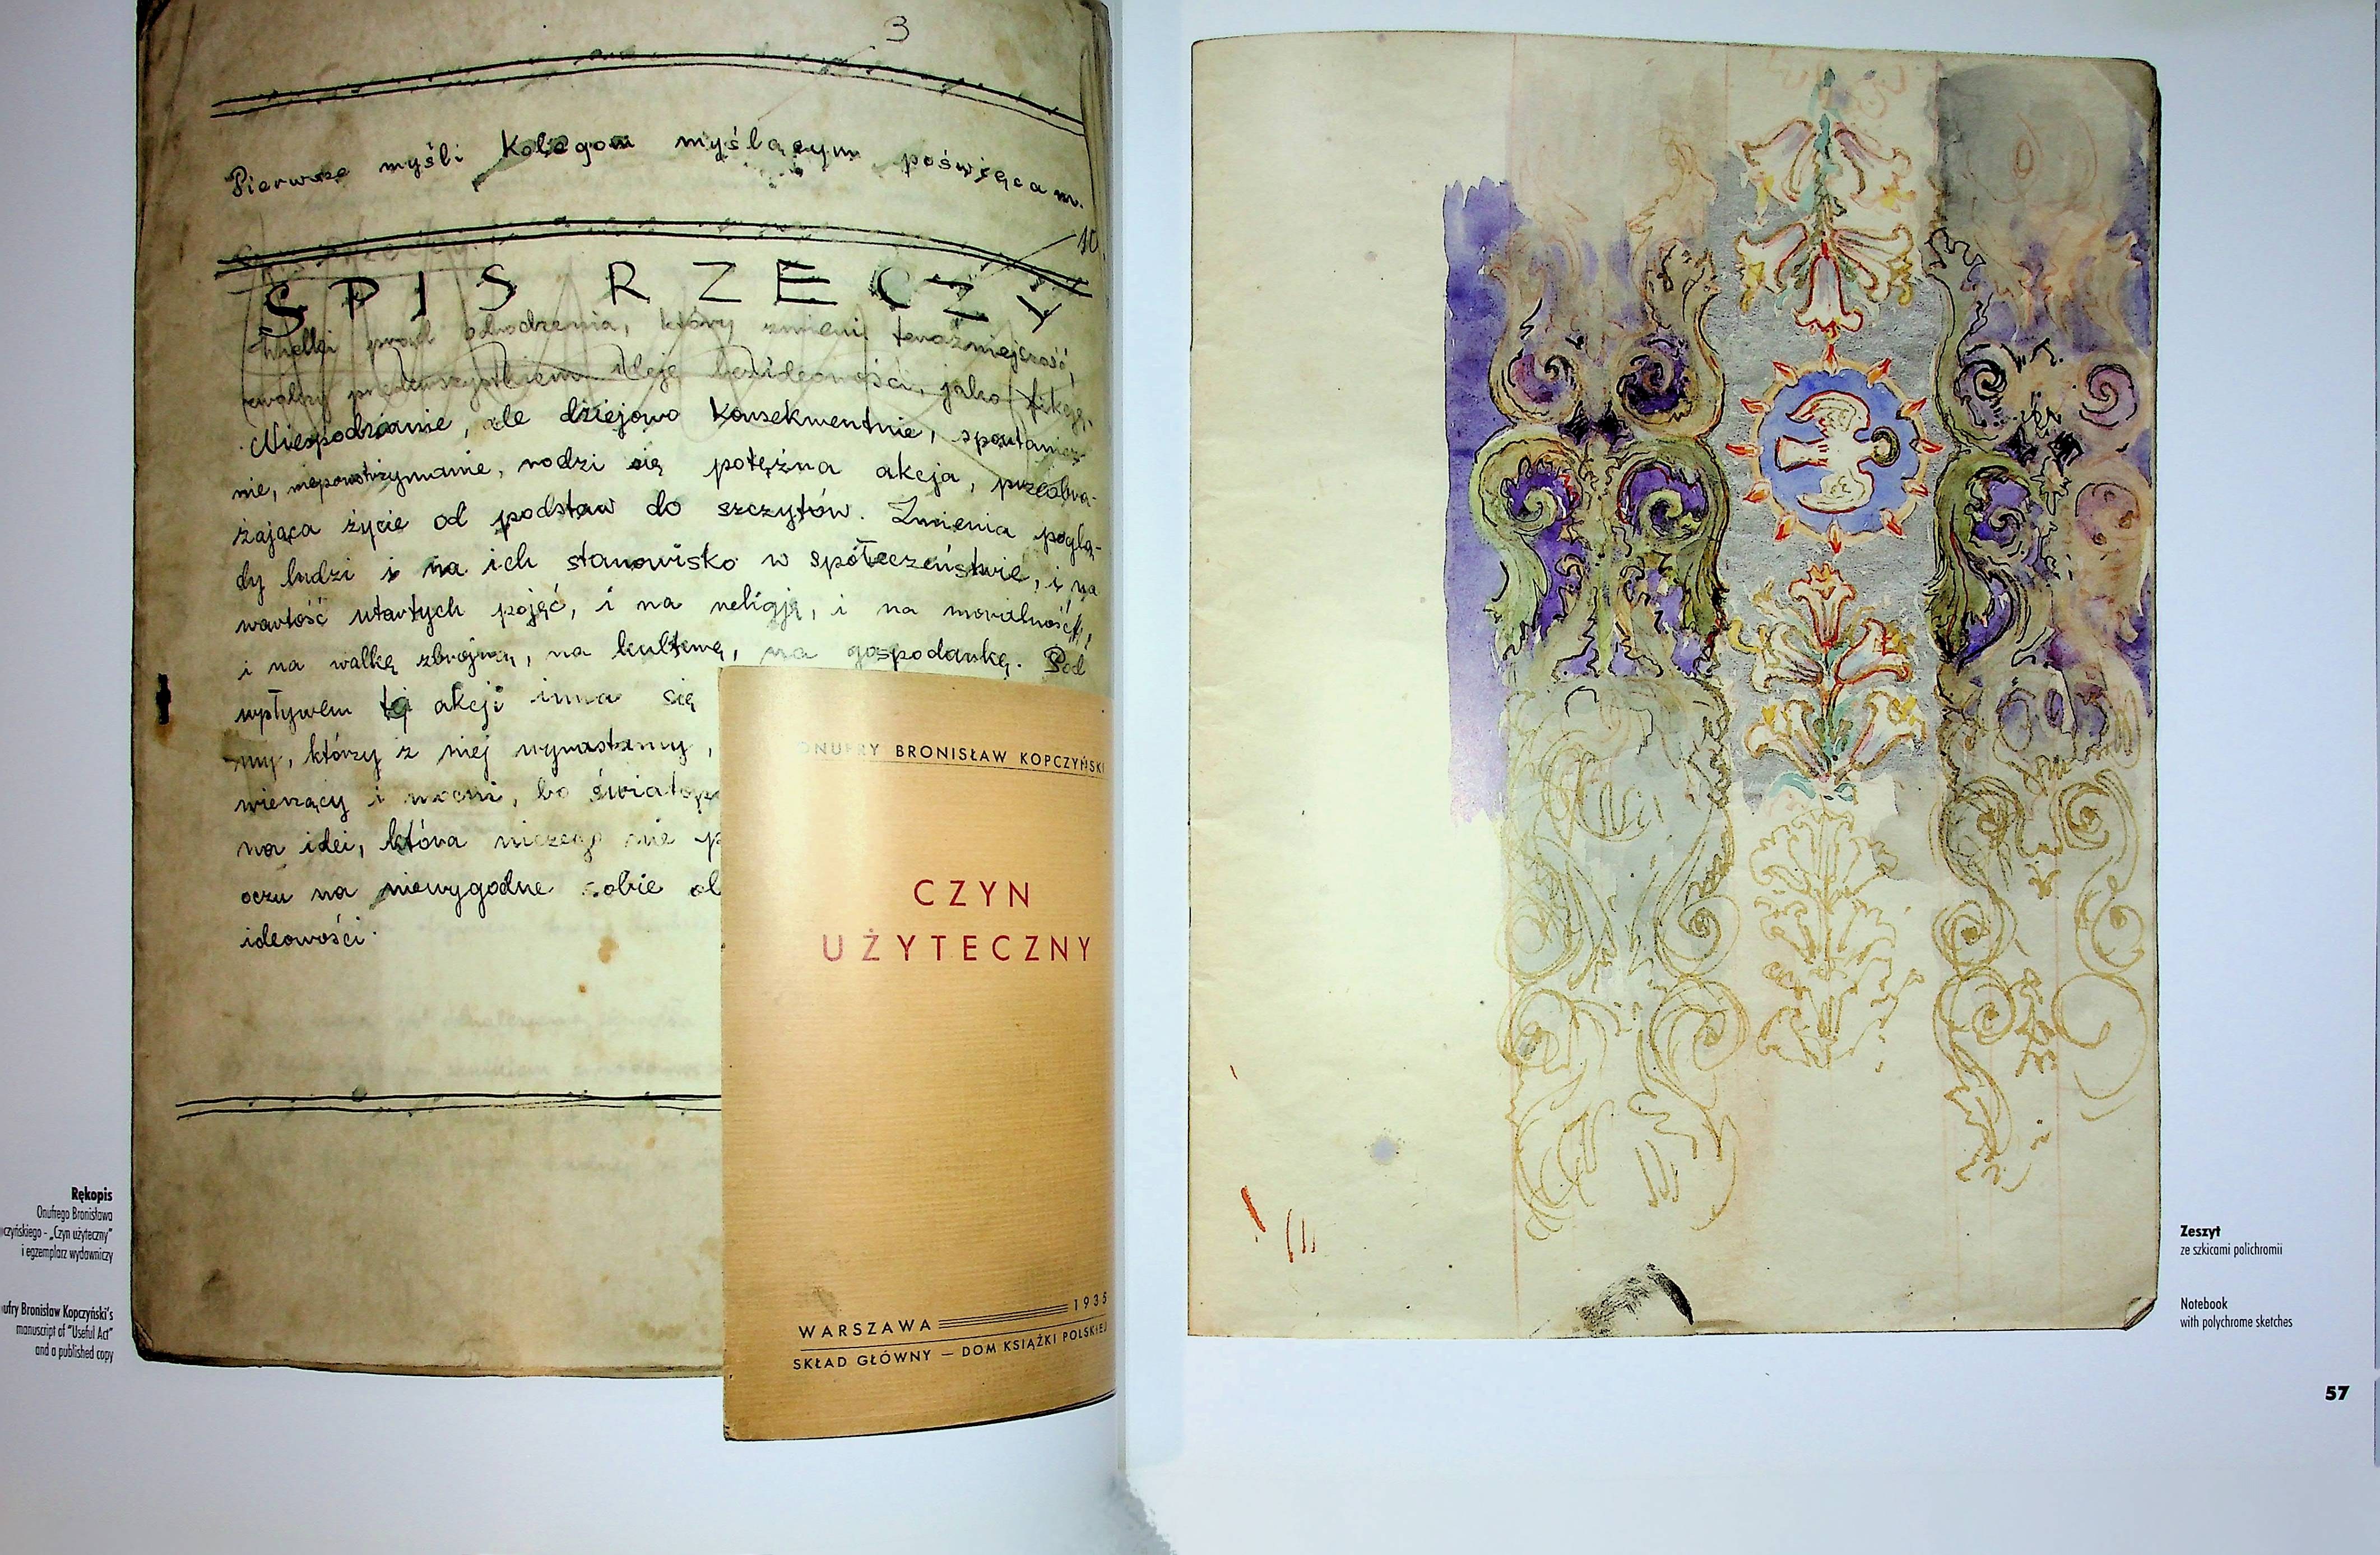 3
Pierwsze myśli Kolegom myślącym poświęcam.
10
SPIS RZECZY
Wielki prąd odrodzenia, który zmieni teraźniejszość,
zwalczy przedewszystkiem ideję bezideowości, jako fikcję.
Niespodzianie, ale dziejowo konsekwentnie, spontanicz-
nie, niepowstrzymanie, rodzi się potężna akcja, przeobra-
żająca życie od podstaw do szczytów. Zmienia poglą-
dy ludzi i na ich stanowisko w społeczeństwie, i na
wartość utartych pojęć, i na religję, i na moralność,
i na walkę zbrojną, na kulturę, na gospodarkę. Pod
wpływem tej akcji inna się
my, którzy z niej wyrastamy,
wierzący i mocni, bo światop
na idei, która niczego nie p
oczu na niewygodne sobie ob
ideowości.
ONUFRY BRONISŁAW KOPCZYŃSKI
CZYN
UŻYTECZNY
WARSZAWA 1935
SKŁAD GŁÓWNY — DOM KSIĄŻKI POLSKIEJ
Rękopis
Onufrego Bronisława
czyńskiego - „Czyn użyteczny"
i egzemplarz wydawniczy
ufry Bronisław Kopczyński's
manuscript of "Useful Act"
and a published copy
Zeszyt
ze szkicami polichromii
Notebook
with polychrome sketches
57